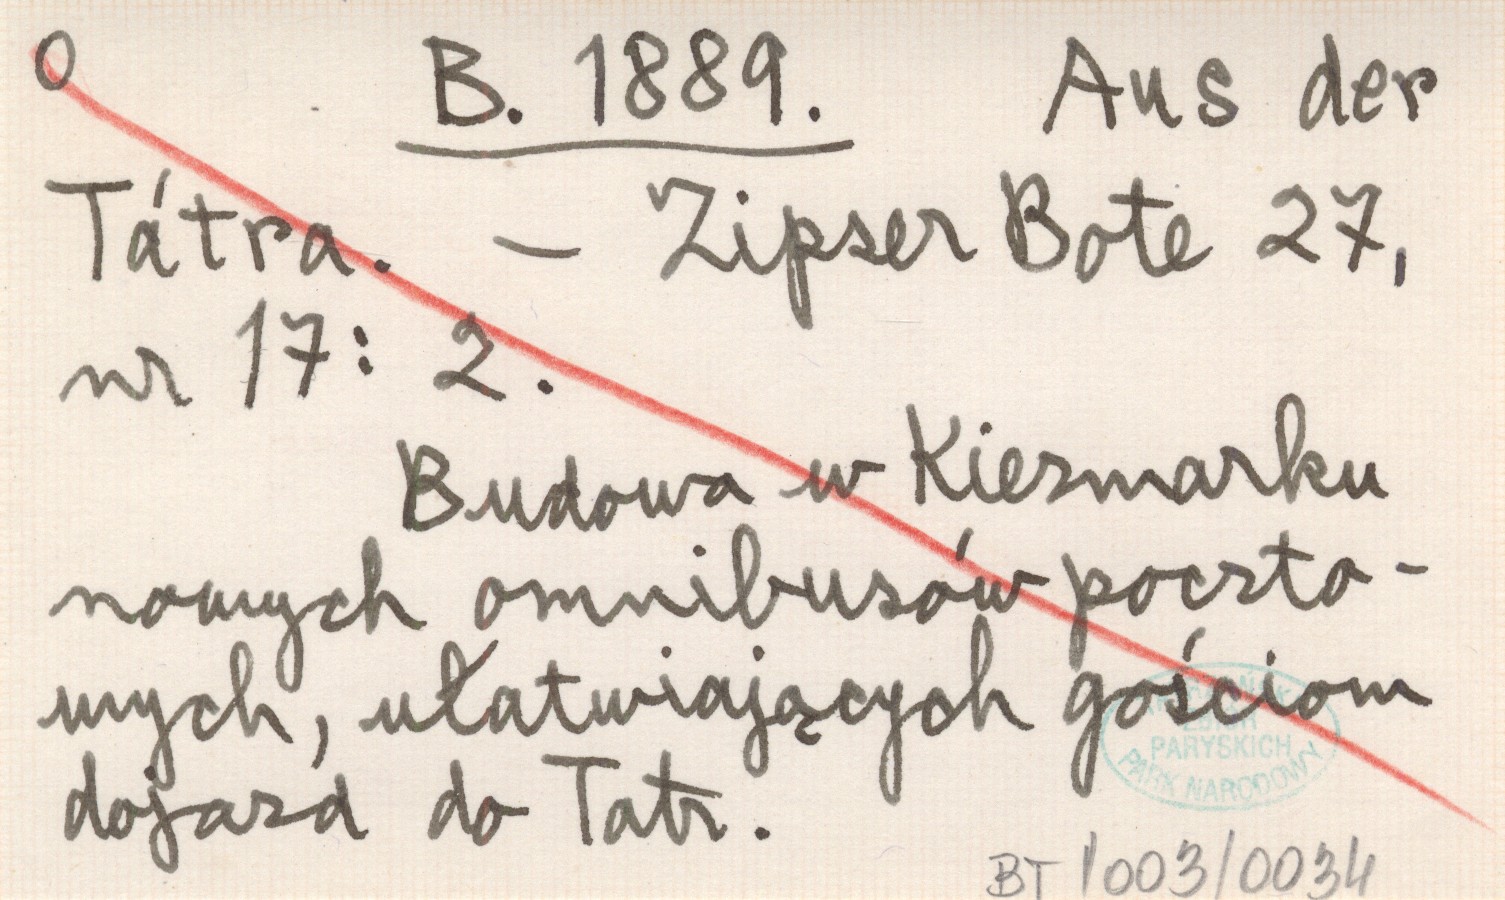 O B. 1889. Aus der
Tátra. — Zipser Bote 27,
nr 17: 2.
Budowa w Kiezmarku
nowych omnibusów poczto-
wych, ułatwiających gościom
dojazd do Tatr.
PARYSKICH
PARK NARODOWY
BT 1003/0034